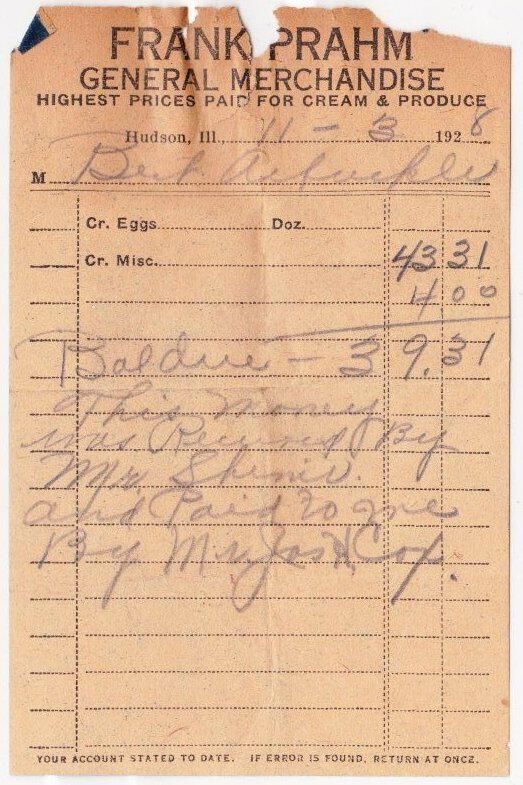 FRANK PRAHM
GENERAL MERCHANDISE
HIGHEST PRICES PAID FOR CREAM & PRODUCE
Hudson, Ill., 11 - 3 1928
M Bert
Cr. Eggs Doz.
Cr. Misc. 43 31
4 00
Bal due - 39.31
This Money
was Received By
Mr.
and Paid To me
By Mr Jas H Cox.
YOUR ACCOUNT STATED TO DATE. IF ERROR IS FOUND, RETURN AT ONCE.